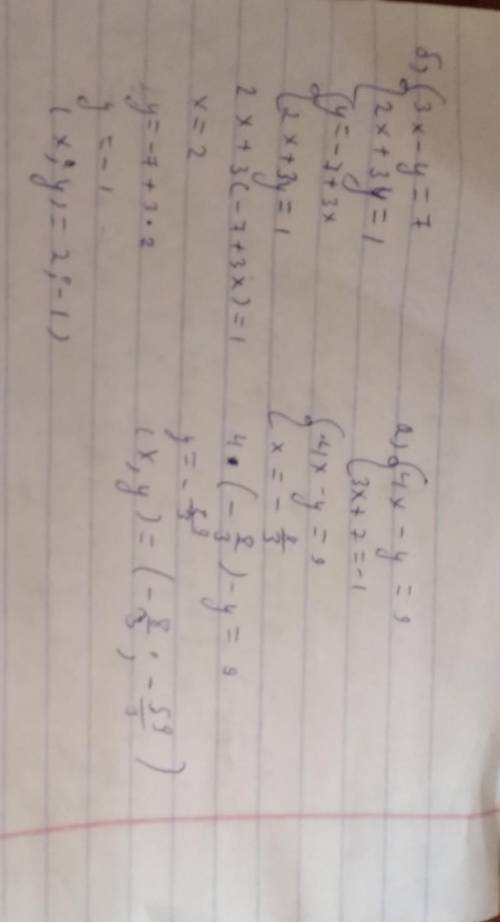 б) { 3x - y = 7
{ 2x + 3y = 1
{ y = -7 + 3x
{ 2x + 3y = 1
2x + 3(-7 + 3x) = 1
x = 2
y = -7 + 3 · 2
y = -1
(x; y) = 2; -1)
а) { 4x - y = 9
{ 3x + 7 = -1
{ 4x - y = 9
{ x = - 8/3
4 · (- 8/3) - y = 9
y = - 59/3
(x, y) = (- 8/3; - 59/3)